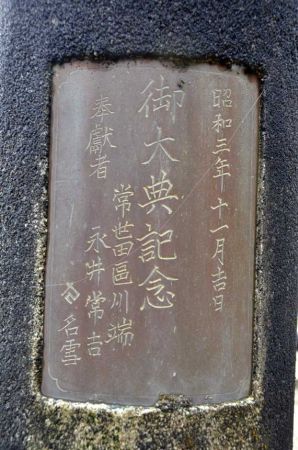 昭和三年十一月吉日
御大典記念
奉獻者
常世田區川端
永井常吉
名雪